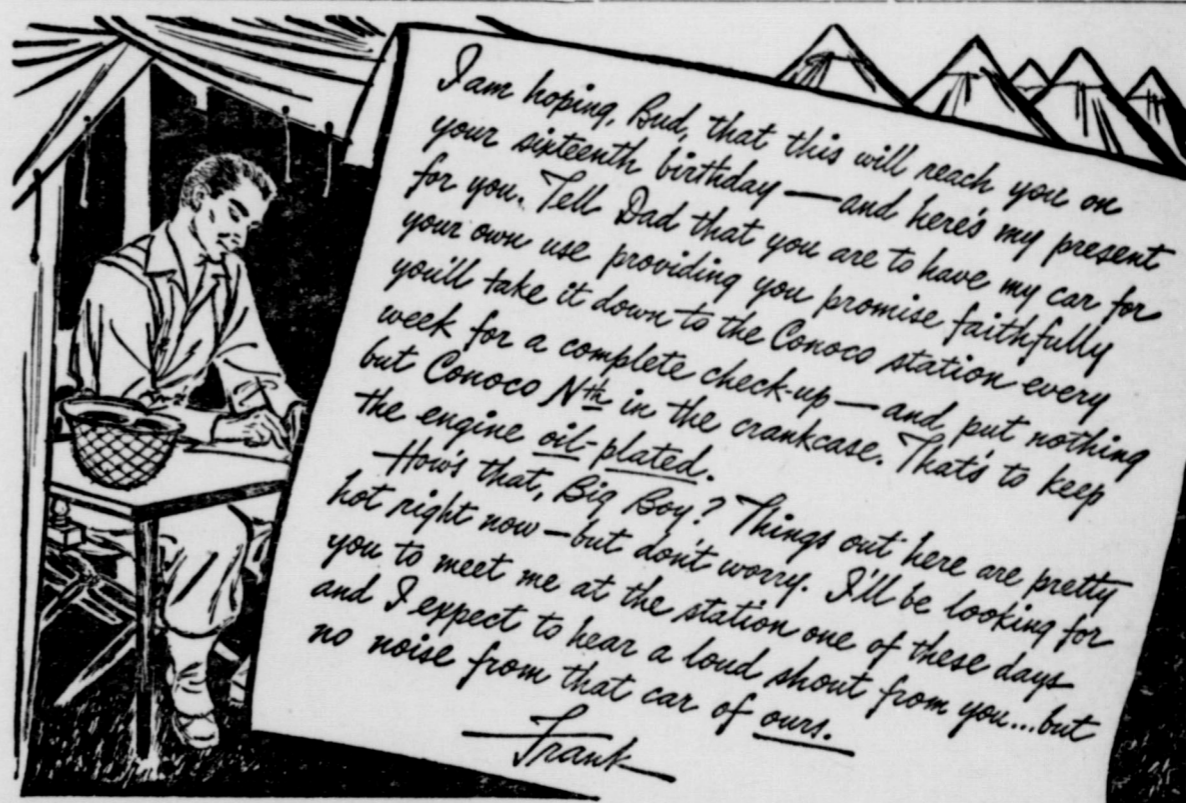 I am hoping, Bud, that this will reach you on
your sixteenth birthday — and here's my present
for you. Tell Dad that you are to have my car for
your own use providing you promise faithfully
you'll take it down to the Conoco station every
week for a complete check-up — and put nothing
but Conoco Nth in the crankcase. That's to keep
the engine oil-plated.
How's that, Big Boy? Things out here are pretty
hot right now — but don't worry. I'll be looking for
you to meet me at the station one of these days
and I expect to hear a loud shout from you....but
no noise from that car of ours.
Frank